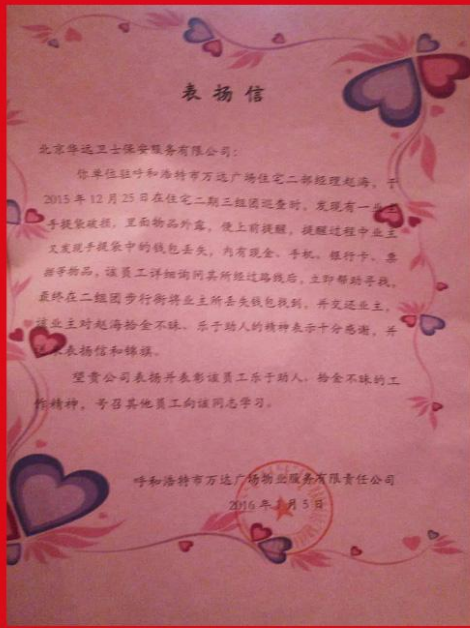 表扬信
北京华远卫士保安服务有限公司:
你单位驻呼和浩特市万达广场住宅二部经理赵海,于
2015年12月25日在住宅二期三组团巡查时,发现有一业主
手提袋破损,里面物品外露,便上前提醒,提醒过程中业主
又发现手提袋中的钱包丢失,内有现金、手机、银行卡、票
据等物品,该员工详细询问其所经过路线后,立即帮助寻找,
最终在二组团步行街将业主所丢失钱包找到,并交还业主,
该业主对赵海拾金不昧、乐于助人的精神表示十分感谢,并
送来表扬信和锦旗。
望贵公司表扬并表彰该员工乐于助人、拾金不昧的工
作精神,号召其他员工向该同志学习。
呼和浩特市万达广场物业服务有限责任公司
2016年 月5日